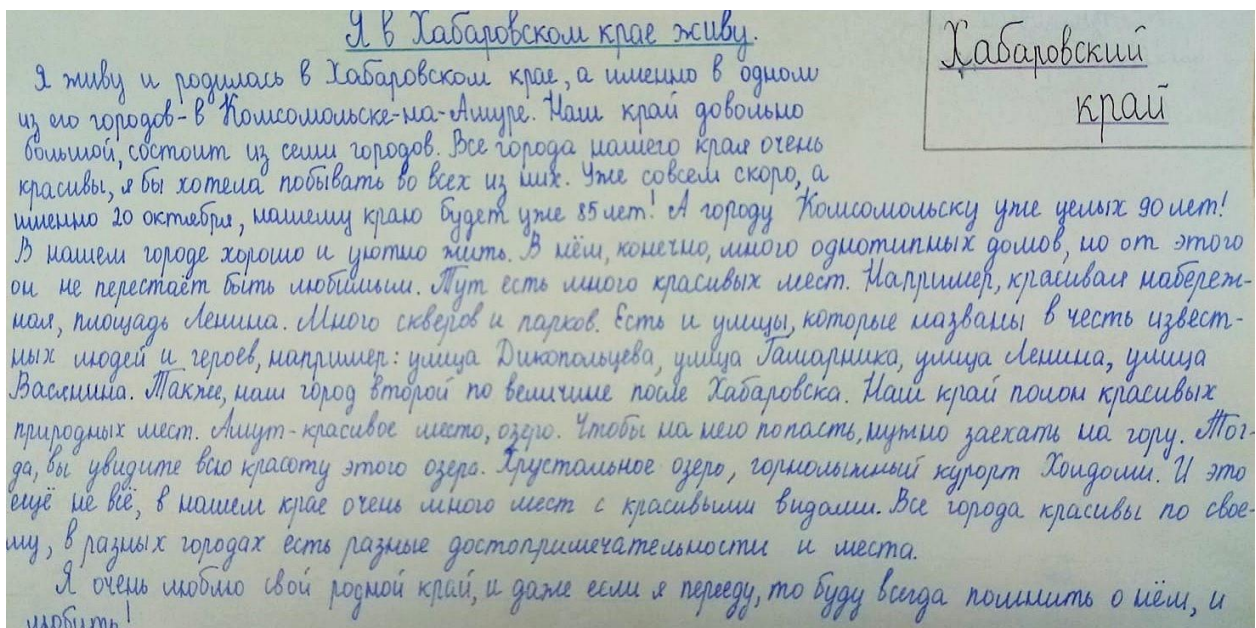 Я в Хабаровском крае живу.
Хабаровский
край
Я живу и родилась в Хабаровском крае, а именно в одном
из его городов - в Комсомольске-на-Амуре. Наш край довольно
большой, состоит из семи городов. Все города нашего края очень
красивы, я бы хотела побывать во всех из них. Уже совсем скоро, а
именно 20 октября, нашему краю будет уже 85 лет! А городу Комсомольску уже целых 90 лет!
В нашем городе хорошо и уютно жить. В нём, конечно, много однотипных домов, но от этого
он не перестаёт быть любимым. Тут есть много красивых мест. Например, красивая набереж-
ная, площадь Ленина. Много скверов и парков. Есть и улицы, которые названы в честь извест-
ных людей и героев, например: улица Дикопольцева, улица Гамарника, улица Ленина, улица
Васянина. Также, наш город второй по величине после Хабаровска. Наш край полон красивых
природных мест. Амут - красивое место, озеро. Чтобы на него попасть, нужно заехать на гору. Тог-
да, вы увидите всю красоту этого озера. Хрустальное озеро, горнолыжный курорт Холдоми. И это
ещё не всё, в нашем крае очень много мест с красивыми видами. Все города красивы по свое-
му, в разных городах есть разные достопримечательности и места.
Я очень люблю свой родной край, и даже если я перееду, то буду всегда помнить о нём, и
любить!